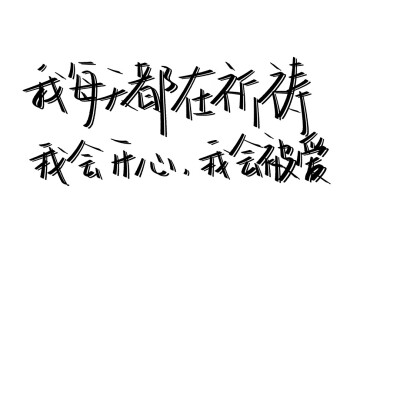 我每天都在祈祷
我会开心,我会被爱